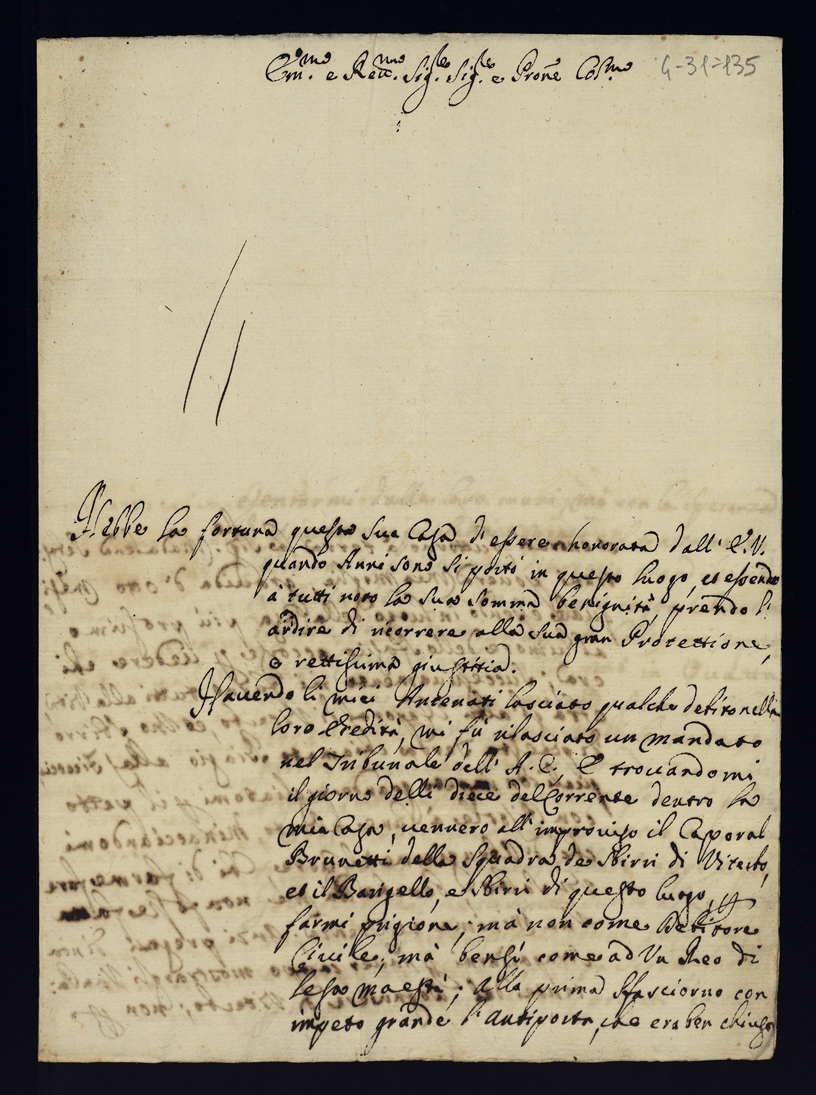 Em.mo e Reu.mo Sig.re Sig.re e Prone Col.mo
4-31-135
Hebbe la fortuna questa sua Casa d'essere honorata dall' E. V.
quando Anni sono si portò in questo luogo, et essendo
à tutti noto la sua somma benignità, prendo l'
ardire di ricorrere alla sua gran Protettione,
e rettissima giustitia.
Hauendo li miei Antenati lasciato qualche debito nella
loro Eredità, mi fù rilasciato un mandato
nel Tribunale dell' A. C., E trouandomi
il giorno delli diece del Corrente dentro la
mia Casa, uennero all'improuiso il Caporal
Brunetti della Squadra de Sbirri di Viterbo,
et il Barigello, e Sbirri di questo luogo, p
farmi prigione, mà non come Debitore
Ciuile, mà bensì come ad Vn Reo di
lesa maestà; Alla prima sfasciorno con
impeto grande l'antiporta, che era ben chiusa